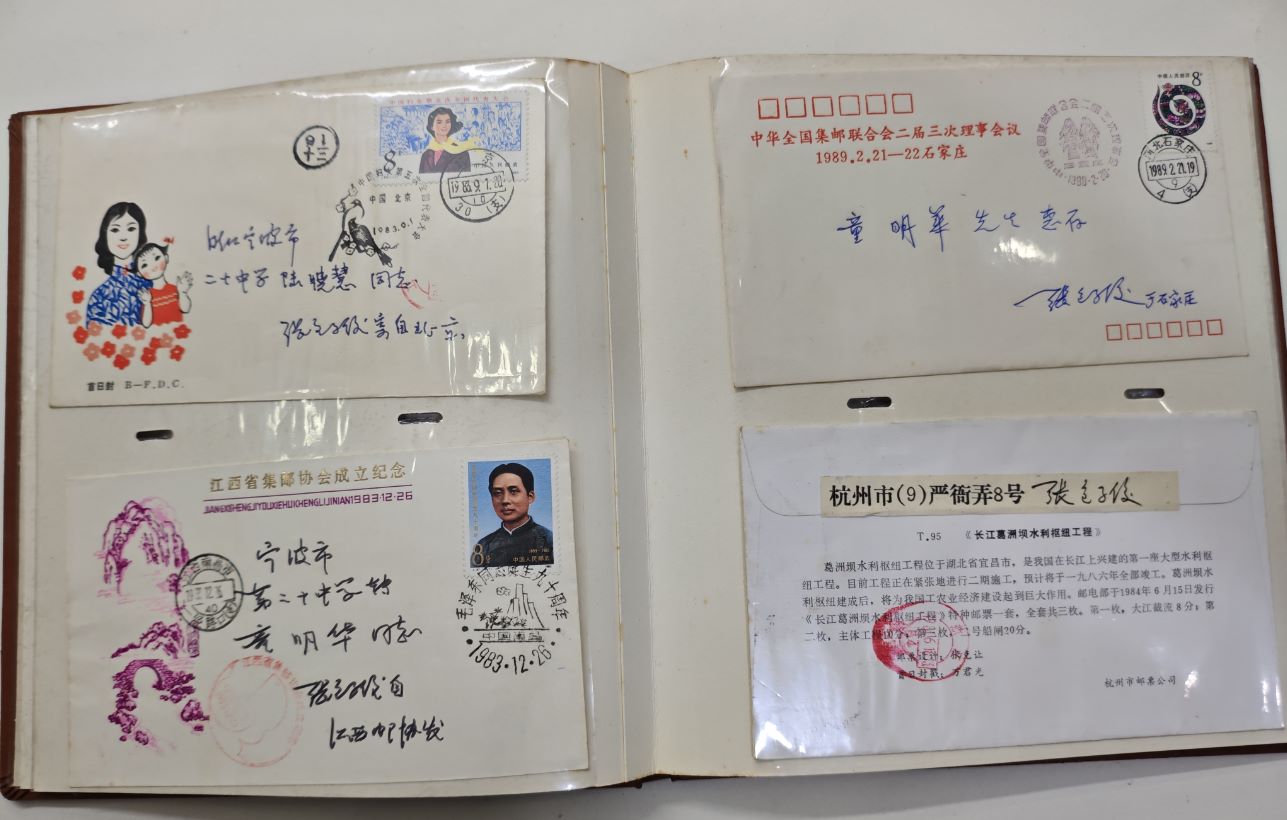 中国妇女第五次全国代表大会
8
中国妇女第五次全国代表大会
中国 北京
1983.9.1
1983.9.1.20
30 (支)
浙江宁波市
二十中学 陆晓慧 同志
寄自北京
首日封 B—F.D.C.
江西省集邮协会成立纪念
JIANGXISHENGJIYOUXIEHUICHENGLIJINIAN1983·12·26
8分
中国人民邮政
宁波市
第二十中学转
童明华 同志
自
江西邮协发
毛泽东同志诞生九十周年
1983·12·26
江西省集邮
中国人民邮政
8分
中华全国集邮联合会二届三次理事会议
1989.2.21—22石家庄
中华全国集邮联合会二届三次理事会议
河北石家庄
1989.2.21.19
4 (支)
童明华 先生 惠存
于石家庄
杭州市(9)严衙弄8号
T.95 《长江葛洲坝水利枢纽工程》
葛洲坝水利枢纽工程位于湖北省宜昌市，是我国在长江上兴建的第一座大型水利枢
纽工程。目前工程正在紧张地进行二期施工，预计将于一九八六年全部竣工。葛洲坝水
利枢纽建成后，将为我国工农业经济建设起到巨大作用。邮电部于1984年6月15日发行
《长江葛洲坝水利枢纽工程》特种邮票一套，全套共三枚。第一枚，大江截流8分；第
二枚，主体工程10分；第三枚，二号船闸20分。
邮票设计：张克让
首日封戳：万君光
杭州市邮票公司